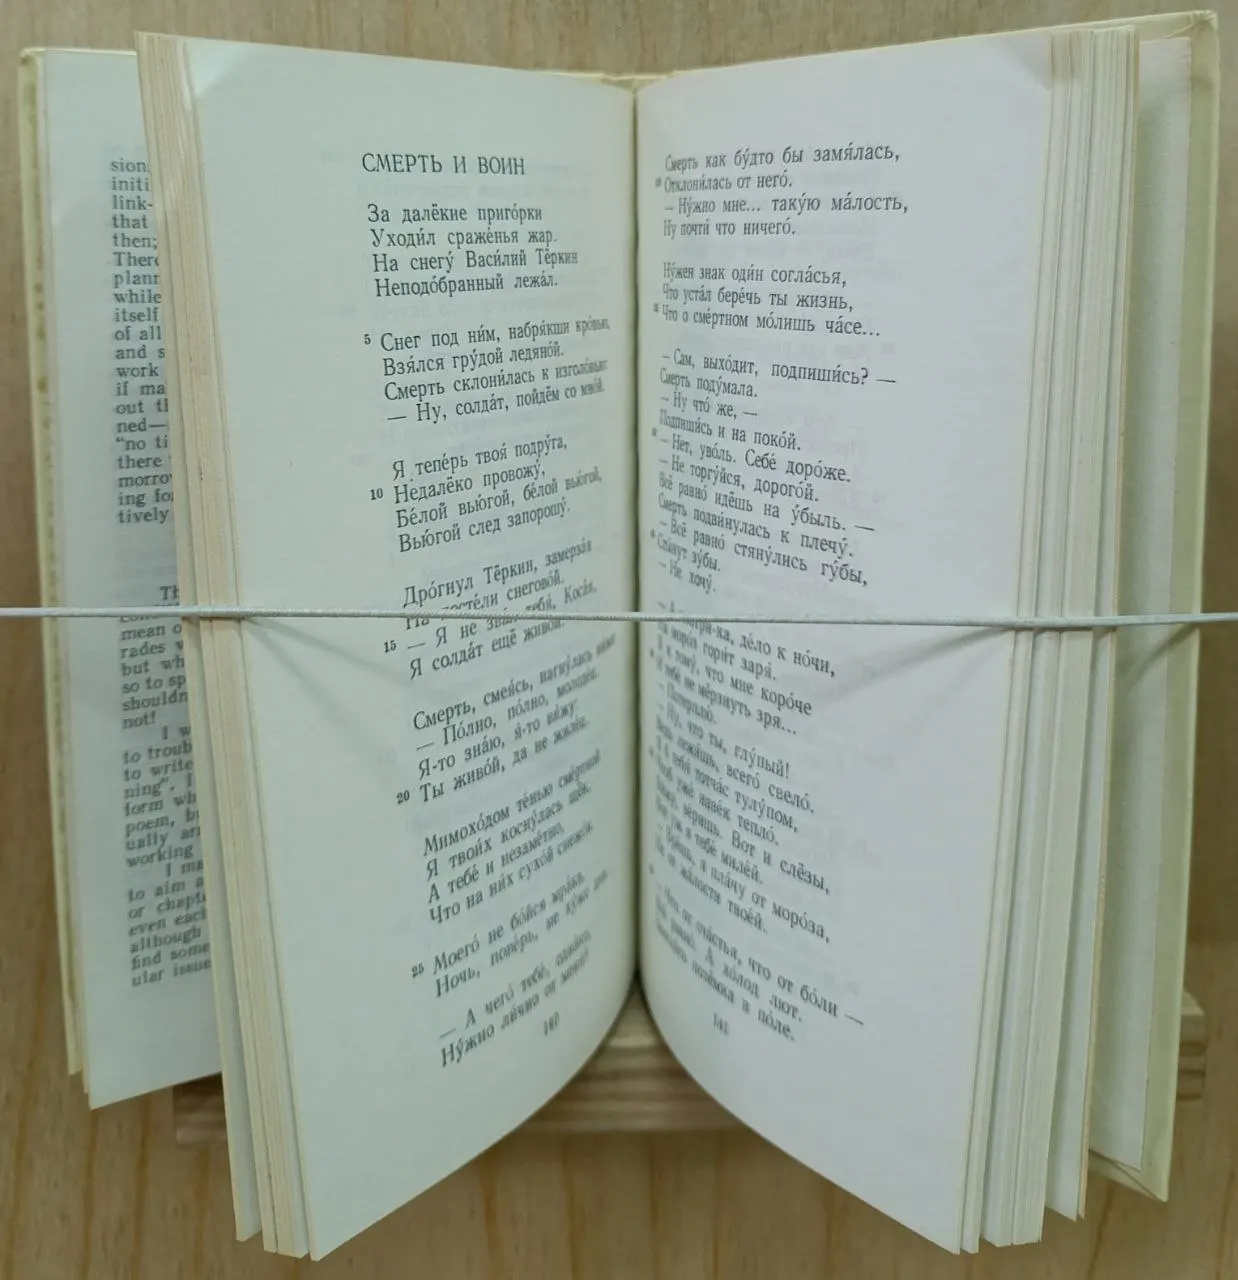 sion;
initi
link-
that
then;
There
plann
while
itself
of all
and s
work
if ma
out th
ned—
“no ti
there
morrow
ing fo
tively
Th
mean o
rades w
but wh
so to sp
shouldn
not!
I w
to troub
to write
ning”. I
form wh
poem, b
ually an
working
I ma
to aim a
or chapt
even eac
although
find some
ular issue
СМЕРТЬ И ВОИН
За далёкие приго́рки
Уходи́л сраже́нья жар.
На снегу́ Васи́лий Тёркин
Неподо́бранный лежа́л.
5 Снег под ним, набря́кши кро́вью,
Взя́лся гру́дой ледяно́й.
Смерть склони́лась к изголо́вью:
— Ну, солда́т, пойдём со мно́й.
Я тепе́рь твоя́ подру́га,
10 Недалёко провожу́,
Бе́лой вью́гой, бе́лой вью́гой,
Вью́гой след запорошу́.
Дро́гнул Тёркин, замерза́я
На посте́ли снегово́й.
15 — Я не зва́л тебя́, Коса́я,
Я солда́т ещё живо́й.
Смерть, смея́сь, нагну́лась ни́же:
— По́лно, по́лно, молоде́ц,
Я-то зна́ю, я́-то ви́жу:
20 Ты живо́й, да не жиле́ц.
Мимохо́дом те́нью сме́ртной
Я твои́х косну́лась щёк,
А тебе́ и незаме́тно,
Что на ни́х сухо́й снежо́к.
25 Моего́ не бо́йся мра́ка,
Ночь, пове́рь, не ху́же дня.
— А чего́ тебе́, одна́ко,
Ну́жно ли́чно от меня́?
140
Смерть как бу́дто бы замя́лась,
30 Отклони́лась от него́.
— Ну́жно мне... таку́ю ма́лость,
Ну почти́ что ничего́.
Ну́жен знак оди́н согла́сья,
Что уста́л бере́чь ты жизнь,
35 Что о сме́ртном мо́лишь ча́се...
— Сам, выхо́дит, подпиши́сь? —
Смерть поду́мала.
— Ну что́ же, —
Подпиши́сь и на поко́й.
— Нет, уво́ль. Себе́ доро́же.
— Не торгу́йся, дорого́й.
Всё равно́ идёшь на у́быль. —
Смерть подви́нулась к плечу́.
— Всё равно́ стяну́лись гу́бы,
Сты́нут зу́бы.
— Не хочу́.
— А смотри́-ка, де́ло к но́чи,
На моро́з гори́т заря́.
Я к тому́, что мне коро́че
И тебе́ не мёрзнуть зря...
— Потерплю́.
— Ну, что ты, глу́пый!
Ведь лежи́шь, всего́ свело́.
Я б тебя́ тотча́с тулу́пом,
Чтоб уже́ наве́к тепло́.
Ви́жу, ве́ришь. Вот и слёзы,
Вот уж я тебе́ миле́й.
— Врёшь, я пла́чу от моро́за,
Не от жа́лости твое́й.
— Что от сча́стья, что от бо́ли —
Всё равно́. А хо́лод лют.
Завила́сь позёмка в по́ле.
141